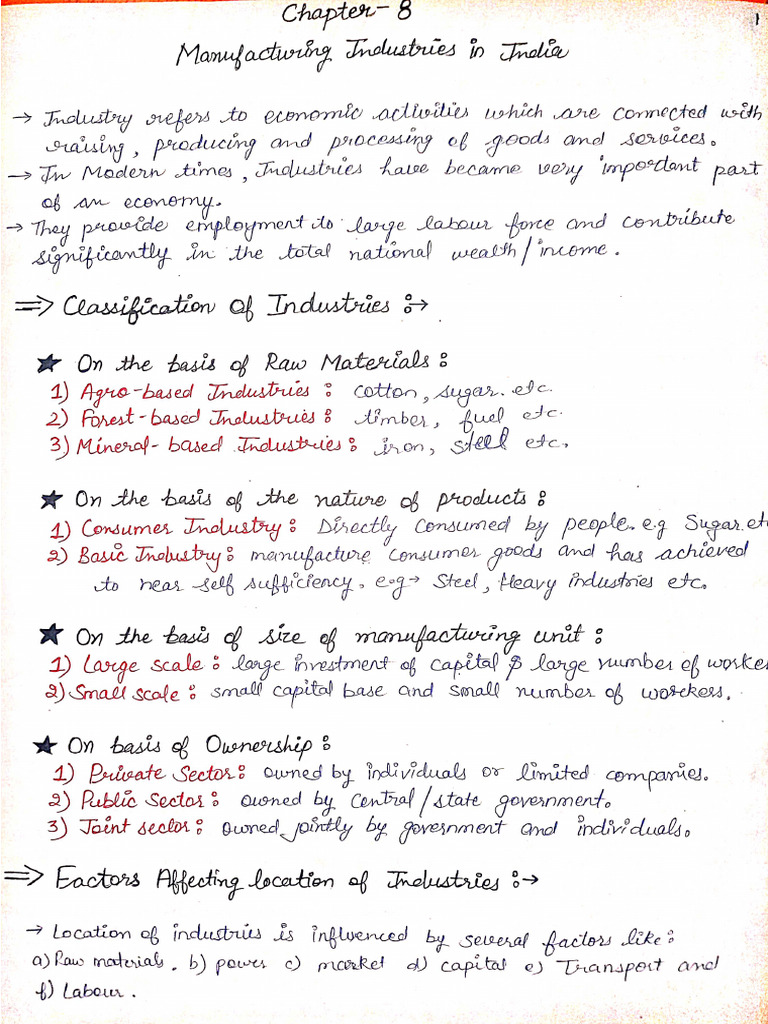 Chapter-8
1
Manufacturing Industries in India
→ Industry refers to economic activities which are connected with
raising, producing and processing of goods and services.
→ In Modern times, Industries have became very important part
of an economy.
→ They provide employment to large labour force and contribute
significantly in the total national wealth/income.
⇒ Classification of Industries :→
★ On the basis of Raw Materials :
1) Agro-based Industries : cotton, sugar. etc.
2) Forest-based Industries : timber, fuel etc.
3) Mineral-based Industries : iron, steel etc.
★ On the basis of the nature of products :
1) Consumer Industry : Directly consumed by people. e.g Sugar.et
2) Basic Industry : manufacture consumer goods and has achieved
to near self sufficiency. e.g→ Steel, Heavy industries etc.
★ On the basis of size of manufacturing unit :
1) Large scale : large investment of capital & large number of worke
2) Small scale : small capital base and small number of workers.
★ On basis of Ownership :
1) Private Sector : owned by individuals or limited companies.
2) Public Sector : owned by central/state government.
3) Joint sector : owned jointly by government and individuals.
⇒ Factors Affecting location of Industries :→
→ Location of industries is influenced by several factors like :
a) Raw materials. b) power c) market d) capital e) Transport and
f) Labour.